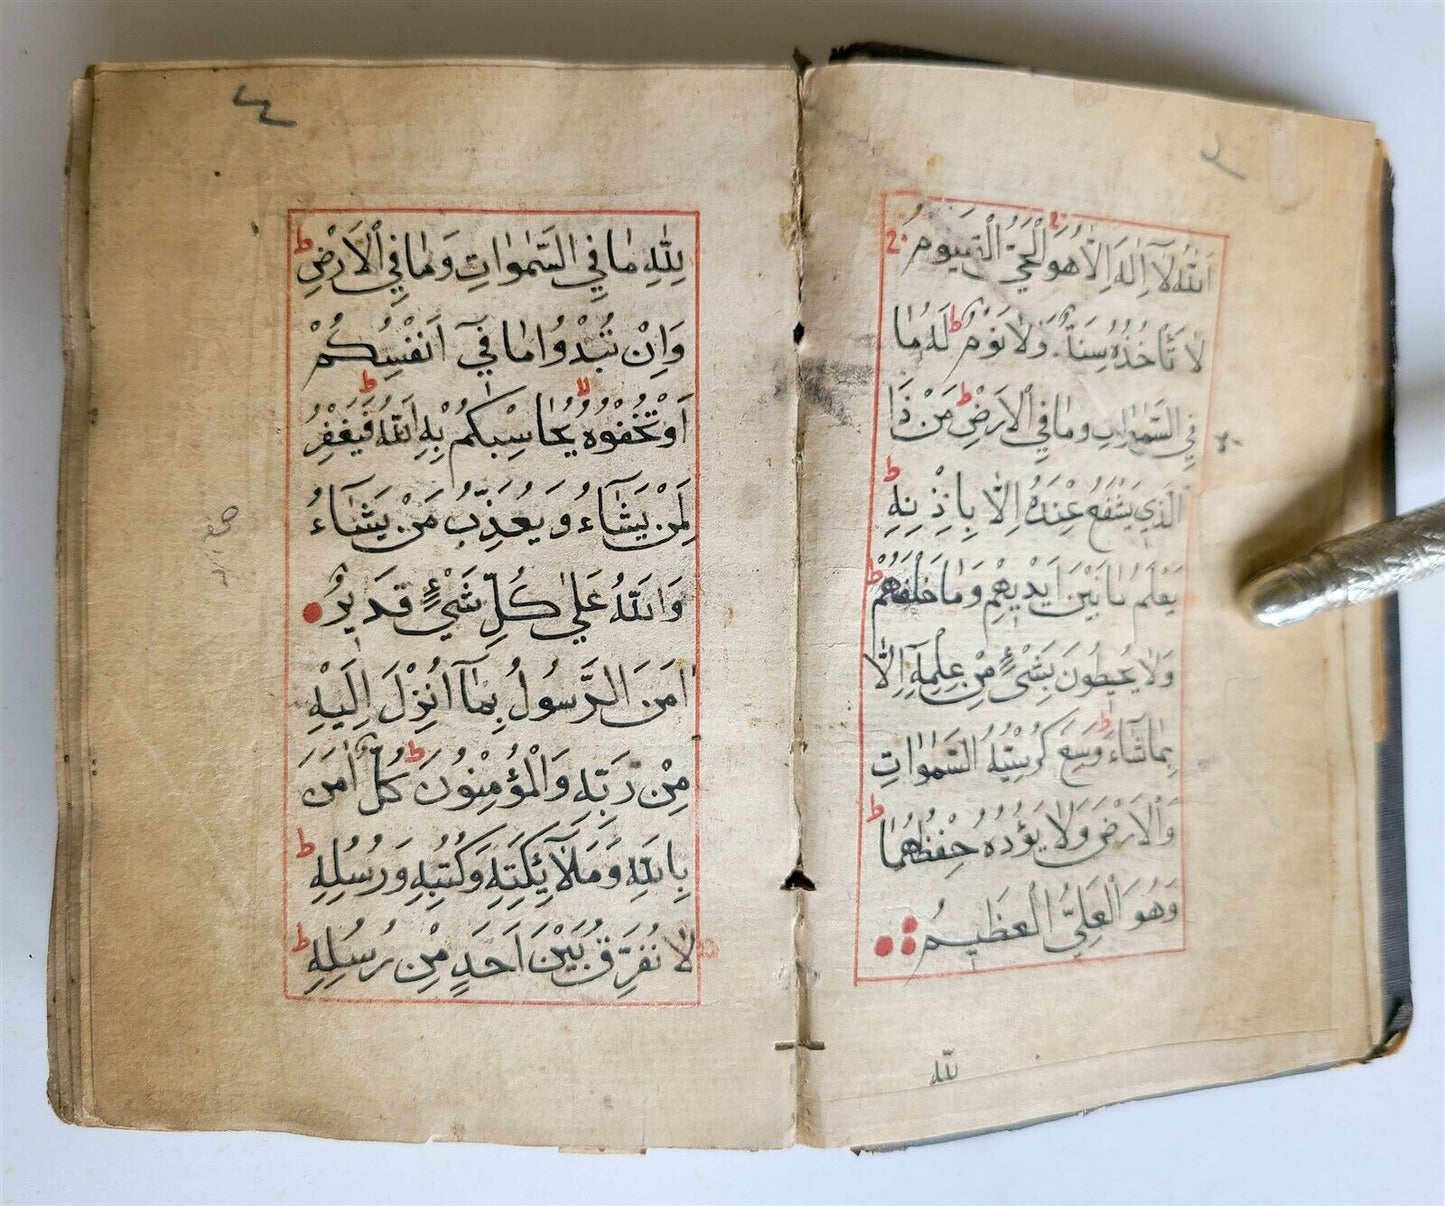 ٣
اَللّٰهُ لَآ اِلٰهَ اِلَّا هُوَ اَلْحَيُّ الْقَيُّومُ
لَا تَأْخُذُهُ سِنَةٌ وَلَا نَوْمٌ ط لَهُ مَا
فِي السَّمٰوَاتِ وَمَا فِي الْاَرْضِ ط مَنْ ذَا
الَّذِي يَشْفَعُ عِنْدَهُ اِلَّا بِاِذْنِهِ ط
يَعْلَمُ مَا بَيْنَ اَيْدِيهِمْ وَمَا خَلْفَهُمْ ط
وَلَا يُحِيطُونَ بِشَيْءٍ مِنْ عِلْمِهِ اِلَّا
بِمَا شَاءَ ط وَسِعَ كُرْسِيُّهُ السَّمٰوَاتِ
وَالْاَرْضَ وَلَا يَؤُدُهُ حِفْظُهُمَا ط
وَهُوَ الْعَلِيُّ الْعَظِيمُ
لله
٤
لِلّٰهِ مَا فِي السَّمٰوَاتِ وَمَا فِي الْاَرْضِ ط
وَاِنْ تُبْدُوا مَا فِيٓ اَنْفُسِكُمْ
اَوْ تُخْفُوهُ يُحَاسِبْكُمْ بِهِ اللّٰهُ ط فَيَغْفِرُ
لِمَنْ يَشَآءُ وَيُعَذِّبُ مَنْ يَشَاءُ
وَاللّٰهُ عَلٰي كُلِّ شَيْءٍ قَدِيرٌ
اٰمَنَ الرَّسُولُ بِمَآ اُنْزِلَ اِلَيْهِ
مِنْ رَبِّهِ وَالْمُؤْمِنُونَ ط كُلٌّ اٰمَنَ
بِاللّٰهِ وَمَلَآئِكَتِهِ وَكُتُبِهِ وَرُسُلِهِ ط
لَا نُفَرِّقُ بَيْنَ اَحَدٍ مِنْ رُسُلِهِ ط